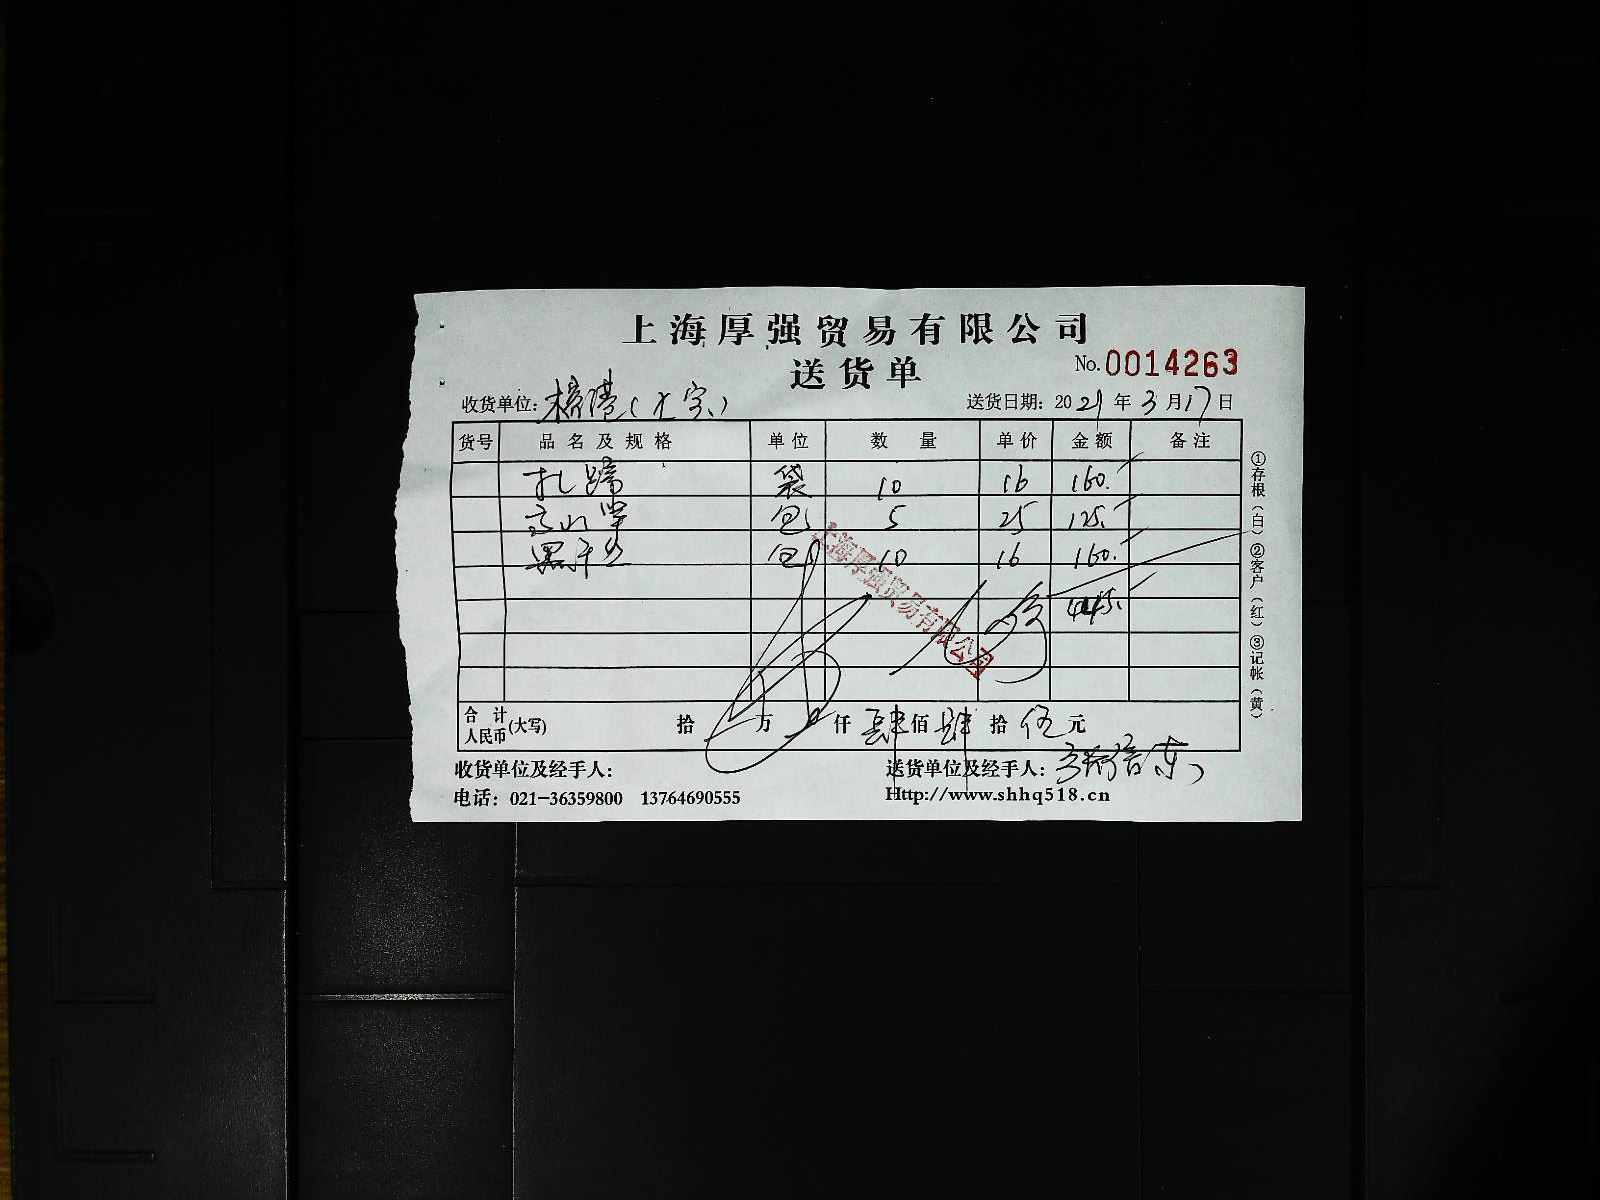 上海厚强贸易有限公司
送货单
No.0014263
收货单位：
送货日期：2021年3月17日
货号 品名及规格 单位 数量 单价 金额 备注
扎蹄 袋 10 16 160.
包 5 25 125.
黑千丝 包 10 16 160.
445.
上海厚强贸易有限公司
合计人民币(大写) 拾 万 仟 肆佰 肆拾 伍元
收货单位及经手人：
送货单位及经手人：
电话：021-36359800 13764690555
Http://www.shhq518.cn
①存根（白）②客户（红）③记帐（黄）